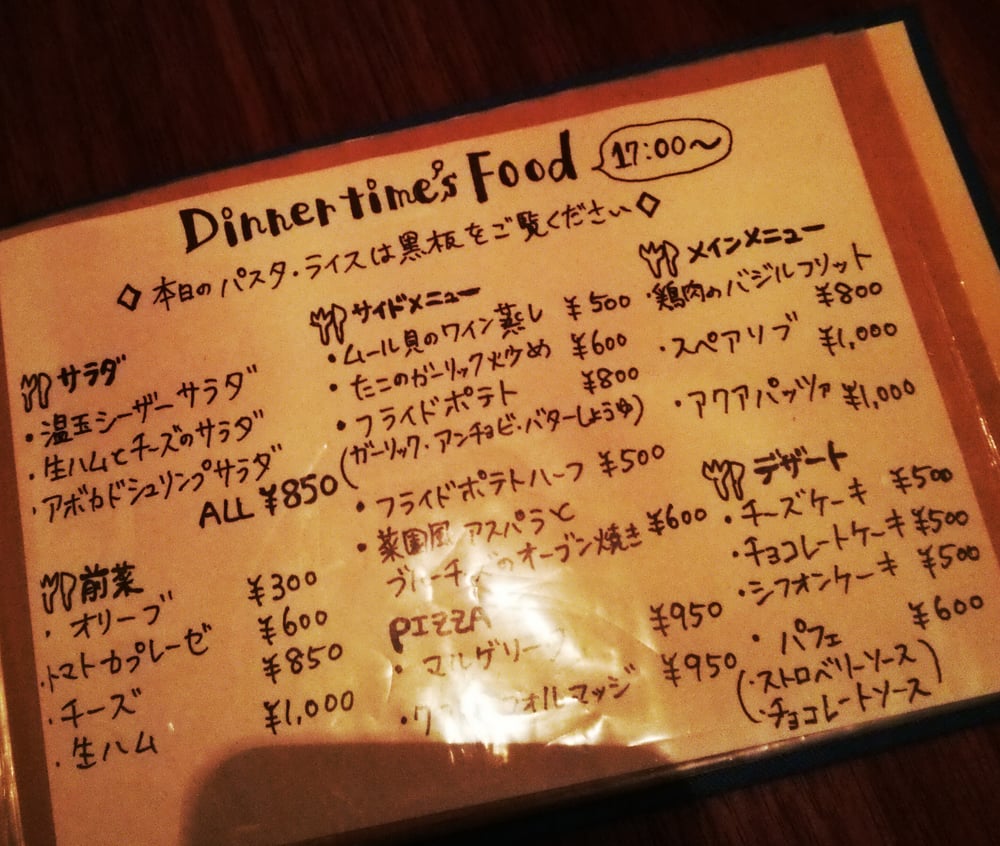 Dinnertime's Food 17:00〜
◇ 本日のパスタ・ライスは黒板をご覧ください ◇
サラダ
・温玉シーザーサラダ
・生ハムとチーズのサラダ
・アボカドシュリンプサラダ
ALL ¥850
前菜
・オリーブ ¥300
・トマトカプレーゼ ¥600
・チーズ ¥850
・生ハム ¥1,000
サイドメニュー
・ムール貝のワイン蒸し ¥500
・たこのガーリック炒め ¥600
・フライドポテト ¥800
(ガーリック・アンチョビ・バターしょうゆ)
・フライドポテトハーフ ¥500
・菜園風 アスパラと
のオーブン焼き ¥600
PIZZA
・マルゲリータ ¥950
フォルマッジ ¥950
メインメニュー
・鶏肉のバジルフリット
¥800
・スペアリブ ¥1,000
・アクアパッツァ ¥1,000
デザート
・チーズケーキ ¥500
・チョコレートケーキ ¥500
・シフォンケーキ ¥500
・パフェ ¥600
(・ストロベリーソース
・チョコレートソース)